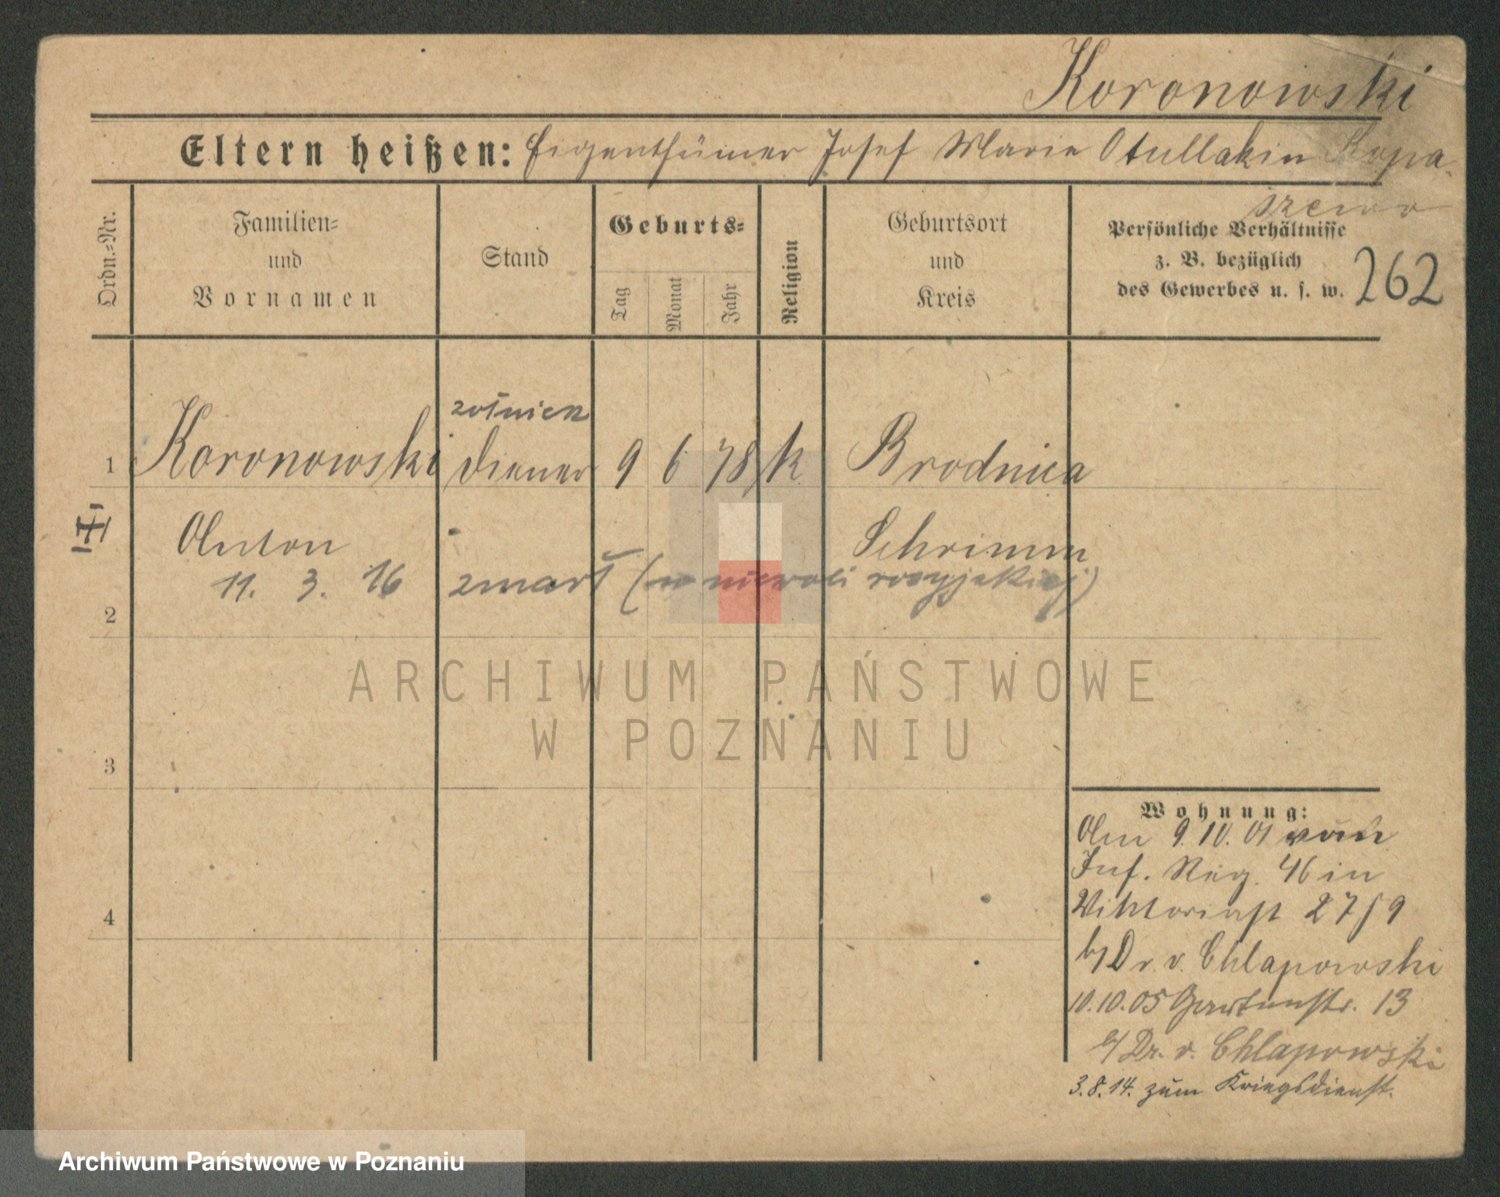 Koronowski
Eltern heißen: Eigenthümer Josef Marie Otullakin Kopa-
szewo
Ordn.-Nr.
Familien-
und
Vornamen
Stand
Geburts-
Tag
Monat
Jahr
Religion
Geburtsort
und
Kreis
Persönliche Verhältnisse
z. B. bezüglich
des Gewerbes u. s. w.
262
żołnierz
1 Koronowski Diener 9 6 78 k Brodnica
Anton Schrimm
11. 3. 16 zmarł (w niewoli rosyjskiej)
2
3
4
ARCHIWUM PAŃSTWOWE
W POZNANIU
Wohnung:
Am 9.10.01 vom
Inf. Reg. 46 in
Viktoriast 27/9
b/Dr. v. Chlapowski
10.10.05 Gartenstr. 13
b/Dr. v. Chlapowski
3.8.14. zum Kriegsdienst.
Archiwum Państwowe w Poznaniu